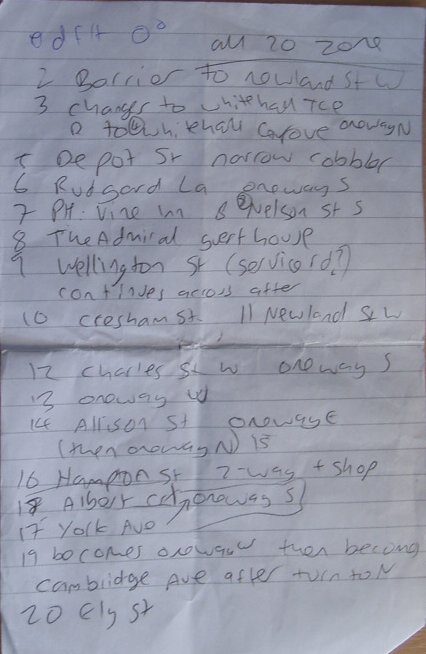 edit 0° all 20 zone
2 Barrier to newland St W
3 changes to whitehall Tce
to 4 whitehall Grove oneway N
5 Depot St narrow cobbles
6 Rudgard La oneway S
7 PH: Vine Inn 8 Nelson St S
8 The Admiral guest house
9 Wellington St (service rd?)
continues across after
10 Gresham St 11 Newland St W
12 Charles St W oneway S
13 oneway W
14 Allison St oneway E
(then oneway N) 15
16 Hampton St 2-way + shop
18 Albert Cr, oneway S
17 York Ave
19 becomes oneway W then becoming
Cambridge Ave after turn to N
20 Ely St